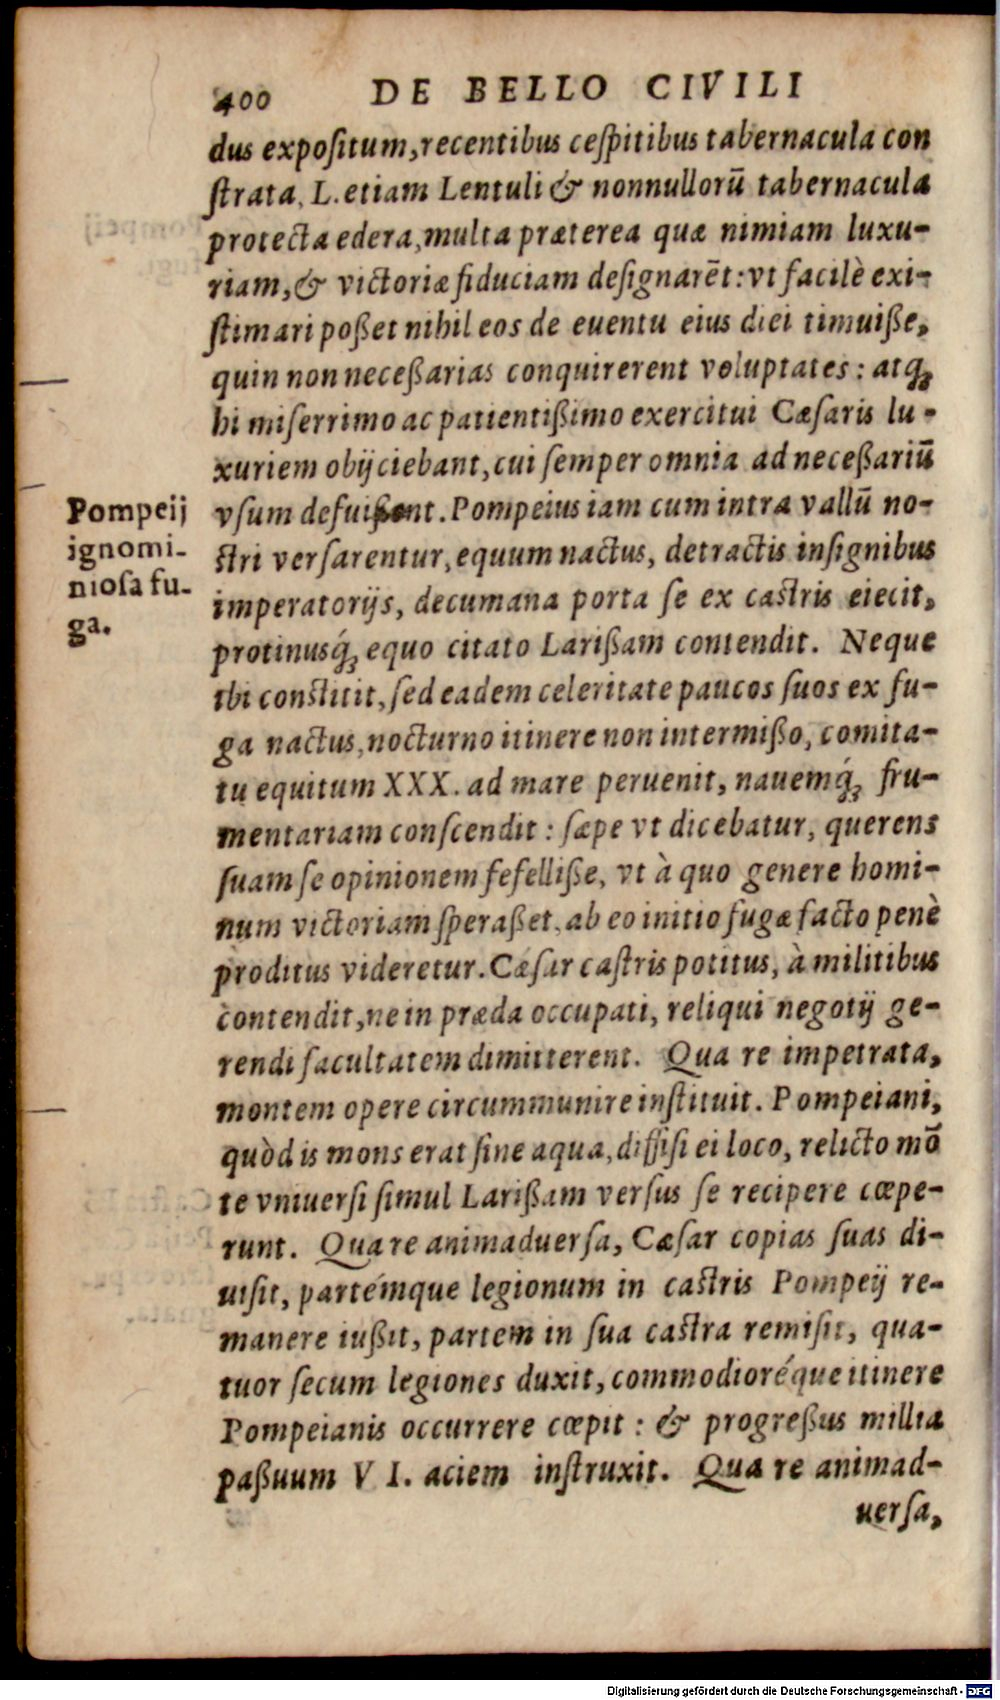 400 DE BELLO CIVILI
dus expoſitum, recentibus ceſpitibus tabernacula con
ſtrata. L. etiam Lentuli & nonnullorū tabernacula
protecta edera, multa præterea quæ nimiam luxu-
riam, & victoriæ fiduciam deſignarēt: vt facilè exi-
ſtimari poßet nihil eos de euentu eius diei timuiße,
quin non neceßarias conquirerent voluptates: atq́;
hi miſerrimo ac patientißimo exercitui Cæſaris lu-
xuriem obijciebant, cui ſemper omnia ad neceßariū
vſum defuißent. Pompeius iam cum intra vallū no-
ſtri verſarentur, equum nactus, detractis inſignibus
imperatorijs, decumana porta ſe ex caſtris eiecit,
protinusq́; equo citato Larißam contendit. Neque
ibi conſtitit, ſed eadem celeritate paucos ſuos ex fu-
ga nactus, nocturno itinere non intermißo, comita-
tu equitum XXX. ad mare peruenit, nauemq́; fru-
mentariam conſcendit: ſæpe vt dicebatur, querens
ſuam ſe opinionem fefelliße, vt à quo genere homi-
num victoriam ſperaßet, ab eo initio fugæ facto penè
proditus videretur. Cæſar caſtris potitus, à militibus
contendit, ne in præda occupati, reliqui negotij ge-
rendi facultatem dimitterent. Qua re impetrata,
montem opere circummunire inſtituit. Pompeiani,
quòd is mons erat ſine aqua, diffiſi ei loco, relicto mō
te vniuerſi ſimul Larißam verſus ſe recipere cœpe-
runt. Qua re animaduerſa, Cæſar copias ſuas di-
uiſit, partémque legionum in caſtris Pompeij re-
manere iußit, partem in ſua caſtra remiſit, qua-
tuor ſecum legiones duxit, commodioréque itinere
Pompeianis occurrere cœpit: & progreßus millia
paßuum V I. aciem inſtruxit. Qua re animad-
uerſa,
Pompeij
ignomi-
nioſa fu-
ga.
Digitalisierung gefördert durch die Deutsche Forschungsgemeinschaft - DFG